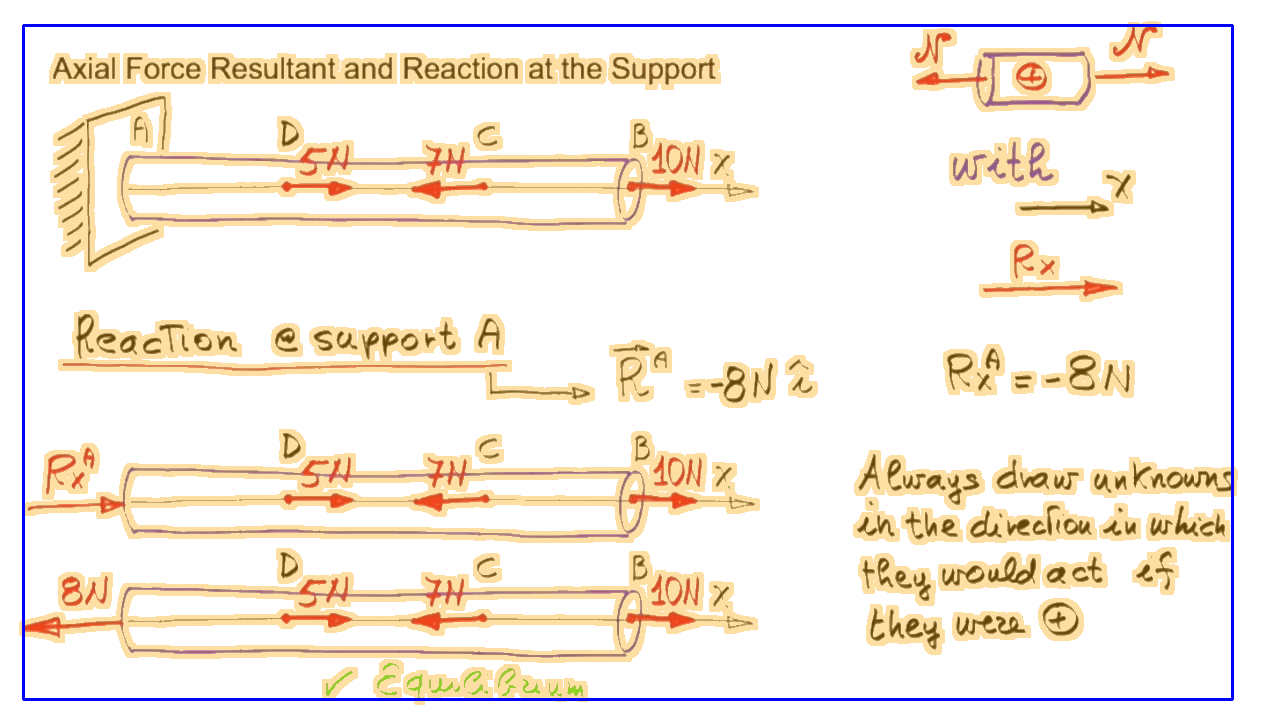 Axial Force Resultant and Reaction at the Support
N N
+
A D 5N 7N C B 10N x
with
x
Rx
Reaction @ support A
R^A = -8N î
Rx^A = -8N
Rx^A D 5N 7N C B 10N x
Always draw unknowns
in the direction in which
they would act if
they were +
8N D 5N 7N C B 10N x
✓ Equilibrium